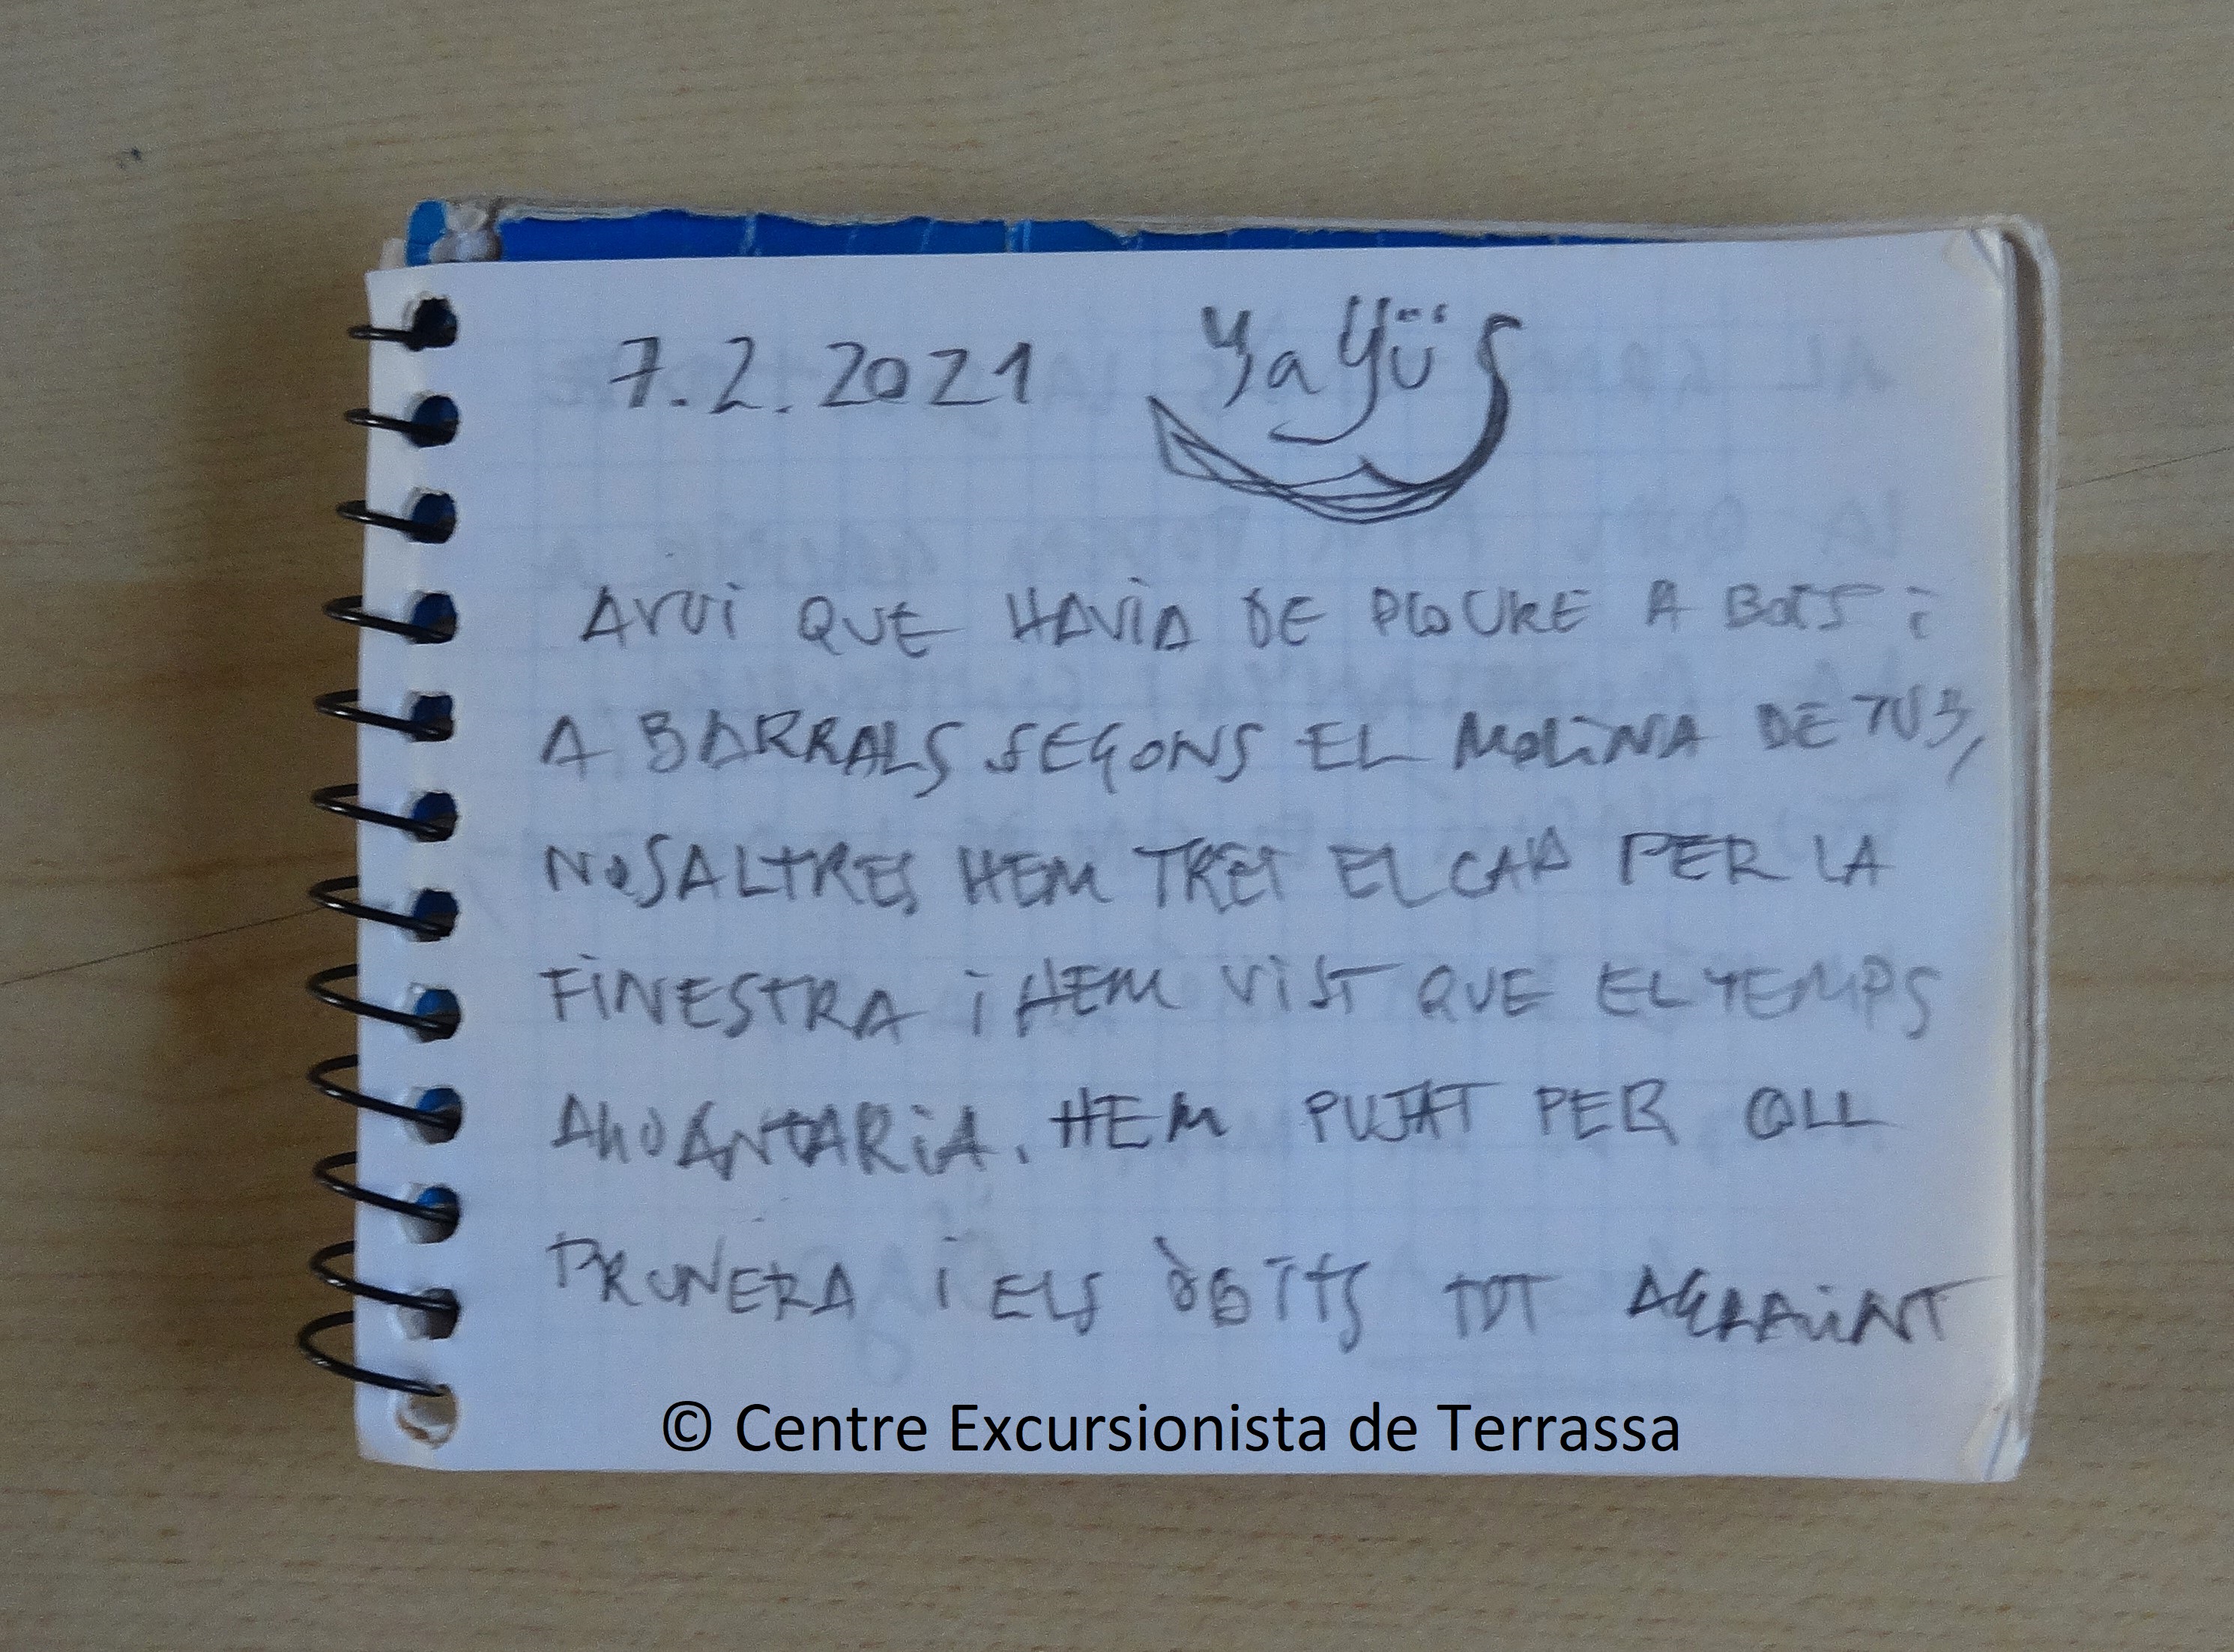 7.2.2021 YaYüS
AVUI QUE HAVIA DE PLOURE A BOTS i
A BARRALS SEGONS EL MOLINA DE TV3,
NOSALTRES HEM TRET EL CAP PER LA
FINESTRA i HEM VIST QUE EL TEMPS
AHUANTARIA. HEM PUJAT PER COLL
PRUNERA i ELS ÒBITS TOT AGRAINT
© Centre Excursionista de Terrassa